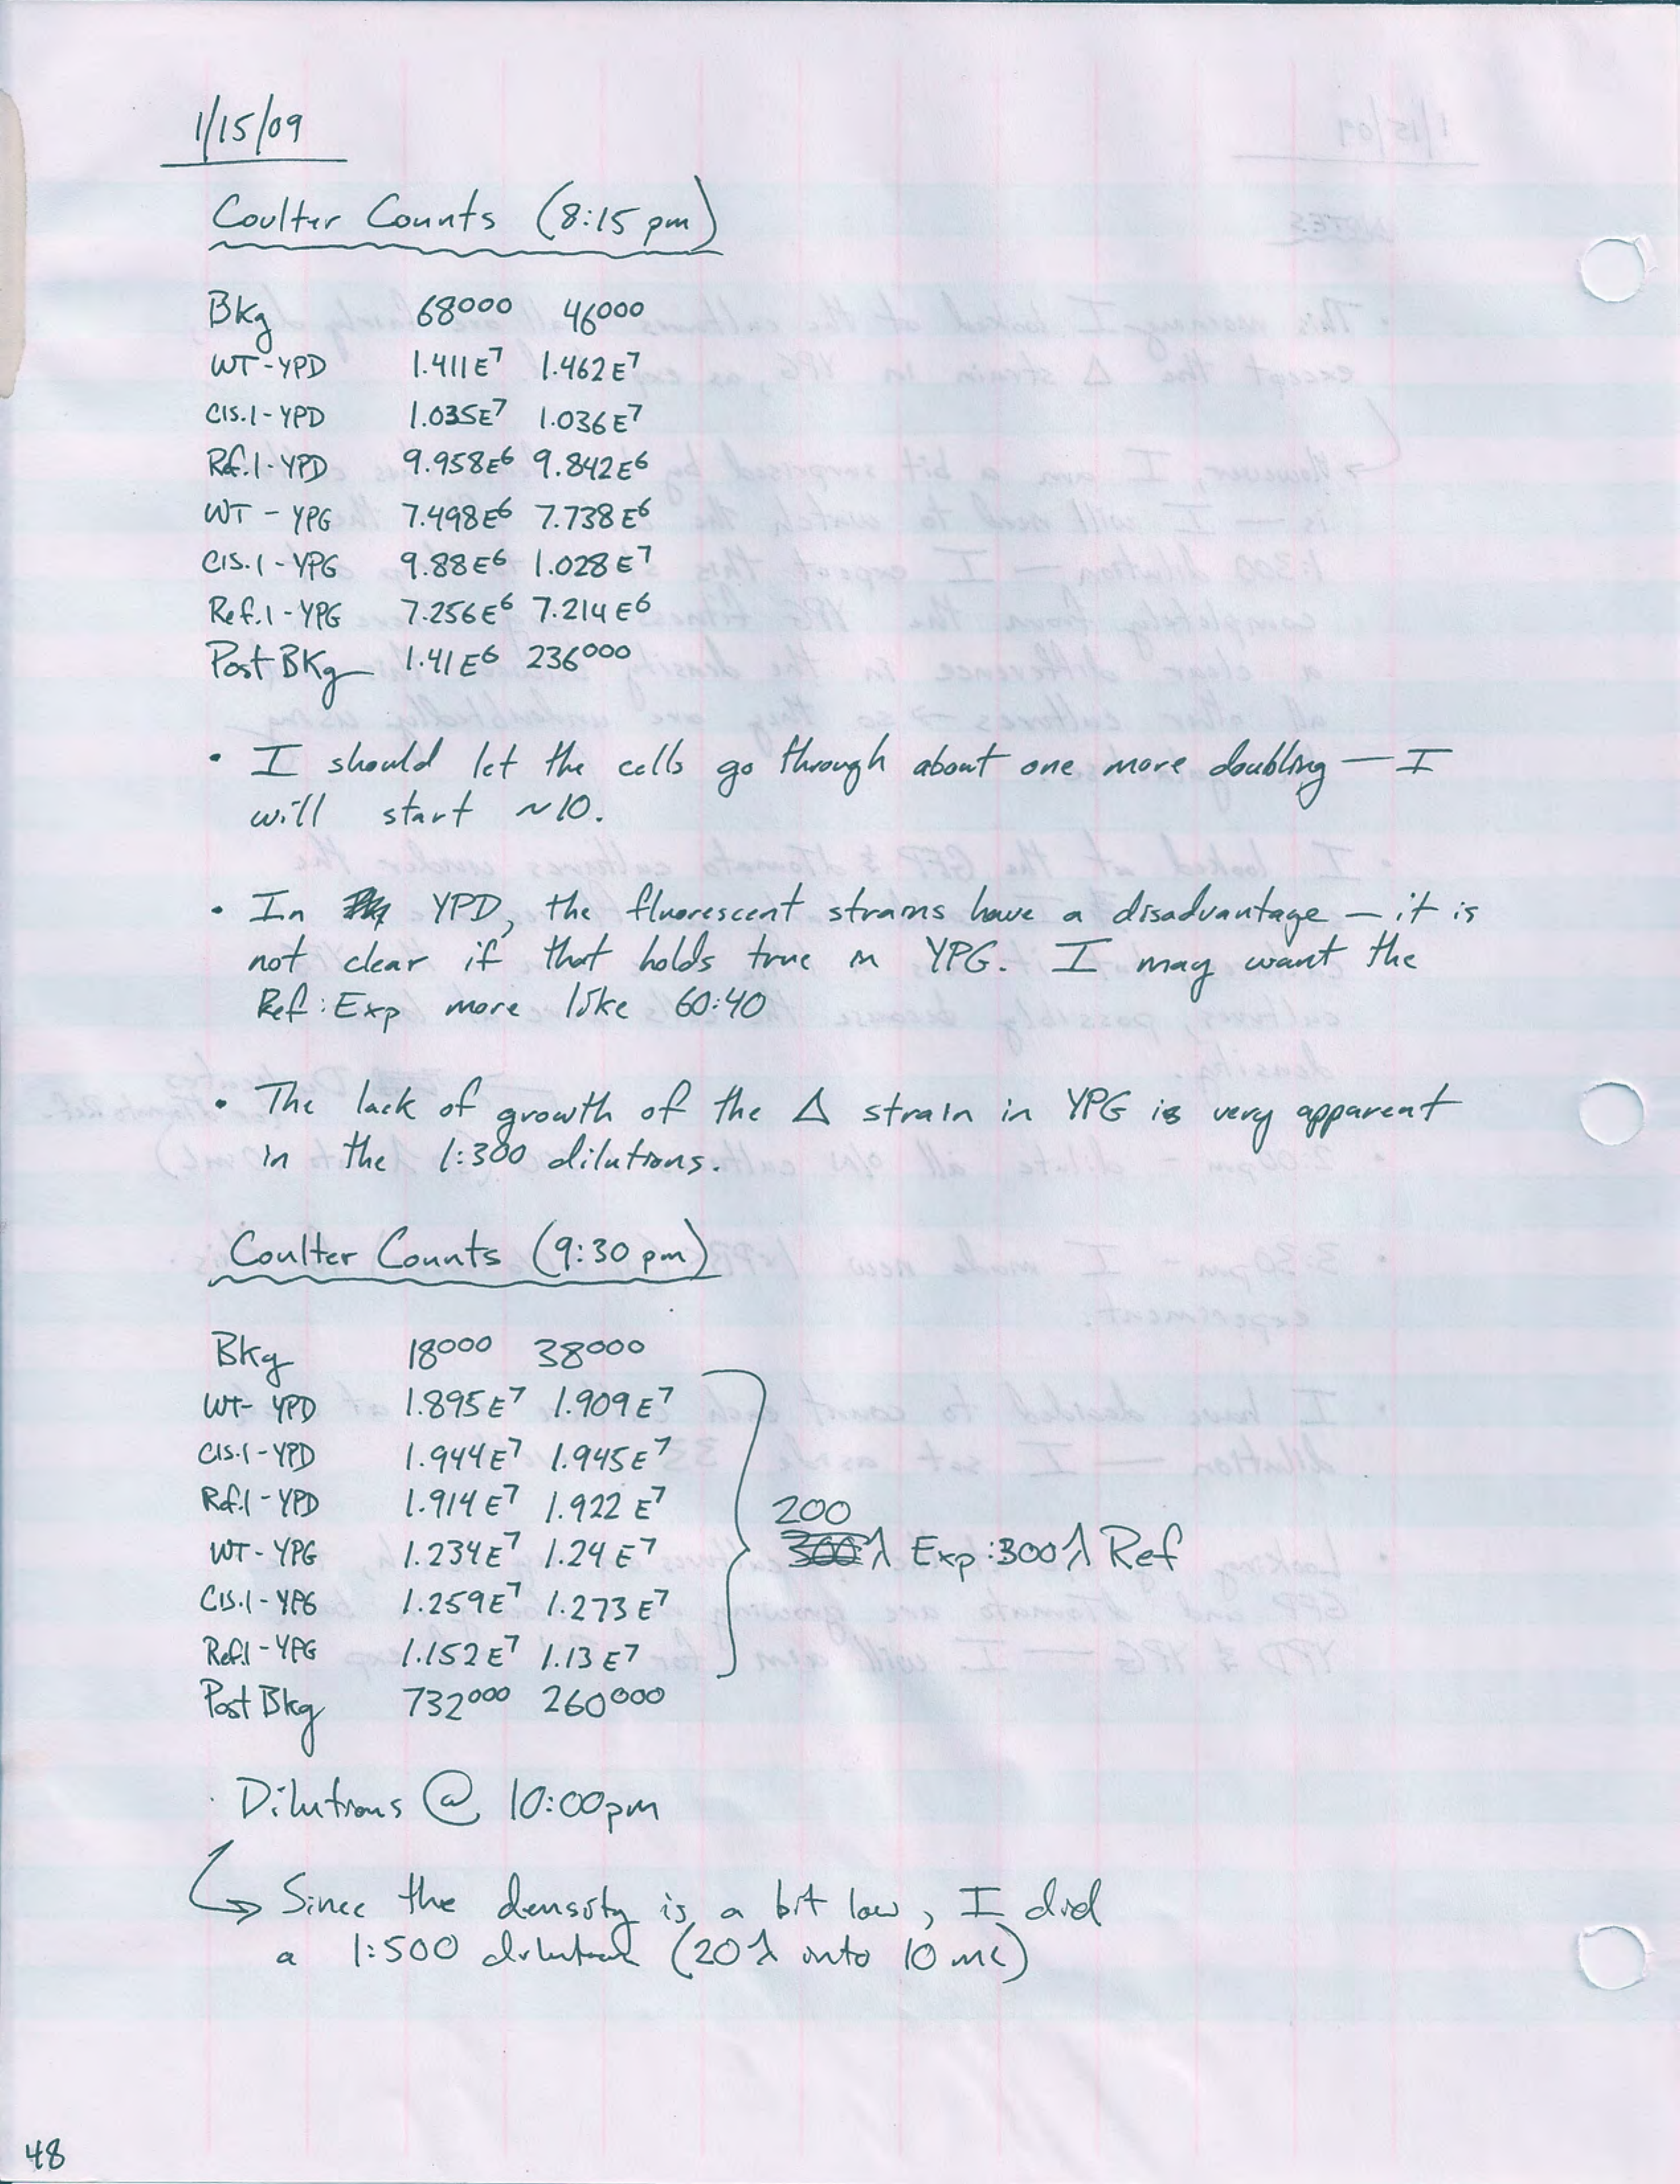 1/15/09
Coulter Counts (8:15 pm)
Bkg 68000 46000
WT-YPD 1.411E7 1.462E7
Cis.1-YPD 1.035E7 1.036E7
Ref.1-YPD 9.958E6 9.842E6
WT-YPG 7.498E6 7.738E6
Cis.1-YPG 9.88E6 1.028E7
Ref.1-YPG 7.256E6 7.214E6
Post BKg 1.41E6 236000
• I should let the cells go through about one more doubling — I
will start ~10.
• In YPD, the fluorescent strains have a disadvantage — it is
not clear if that holds true in YPG. I may want the
Ref:Exp more like 60:40
• The lack of growth of the Δ strain in YPG is very apparent
in the 1:300 dilutions.
Coulter Counts (9:30 pm)
Bkg 18000 38000
WT-YPD 1.895E7 1.909E7
Cis.1-YPD 1.944E7 1.945E7
Ref.1-YPD 1.914E7 1.922E7
200
WT-YPG 1.234E7 1.24E7
300λ Exp:300λ Ref
Cis.1-YPG 1.259E7 1.273E7
Ref.1-YPG 1.152E7 1.13E7
Post Bkg 732000 260000
· Dilutions @ 10:00pm
↳ Since the density is a bit low, I did
a 1:500 dilution (20λ into 10 mL)
48